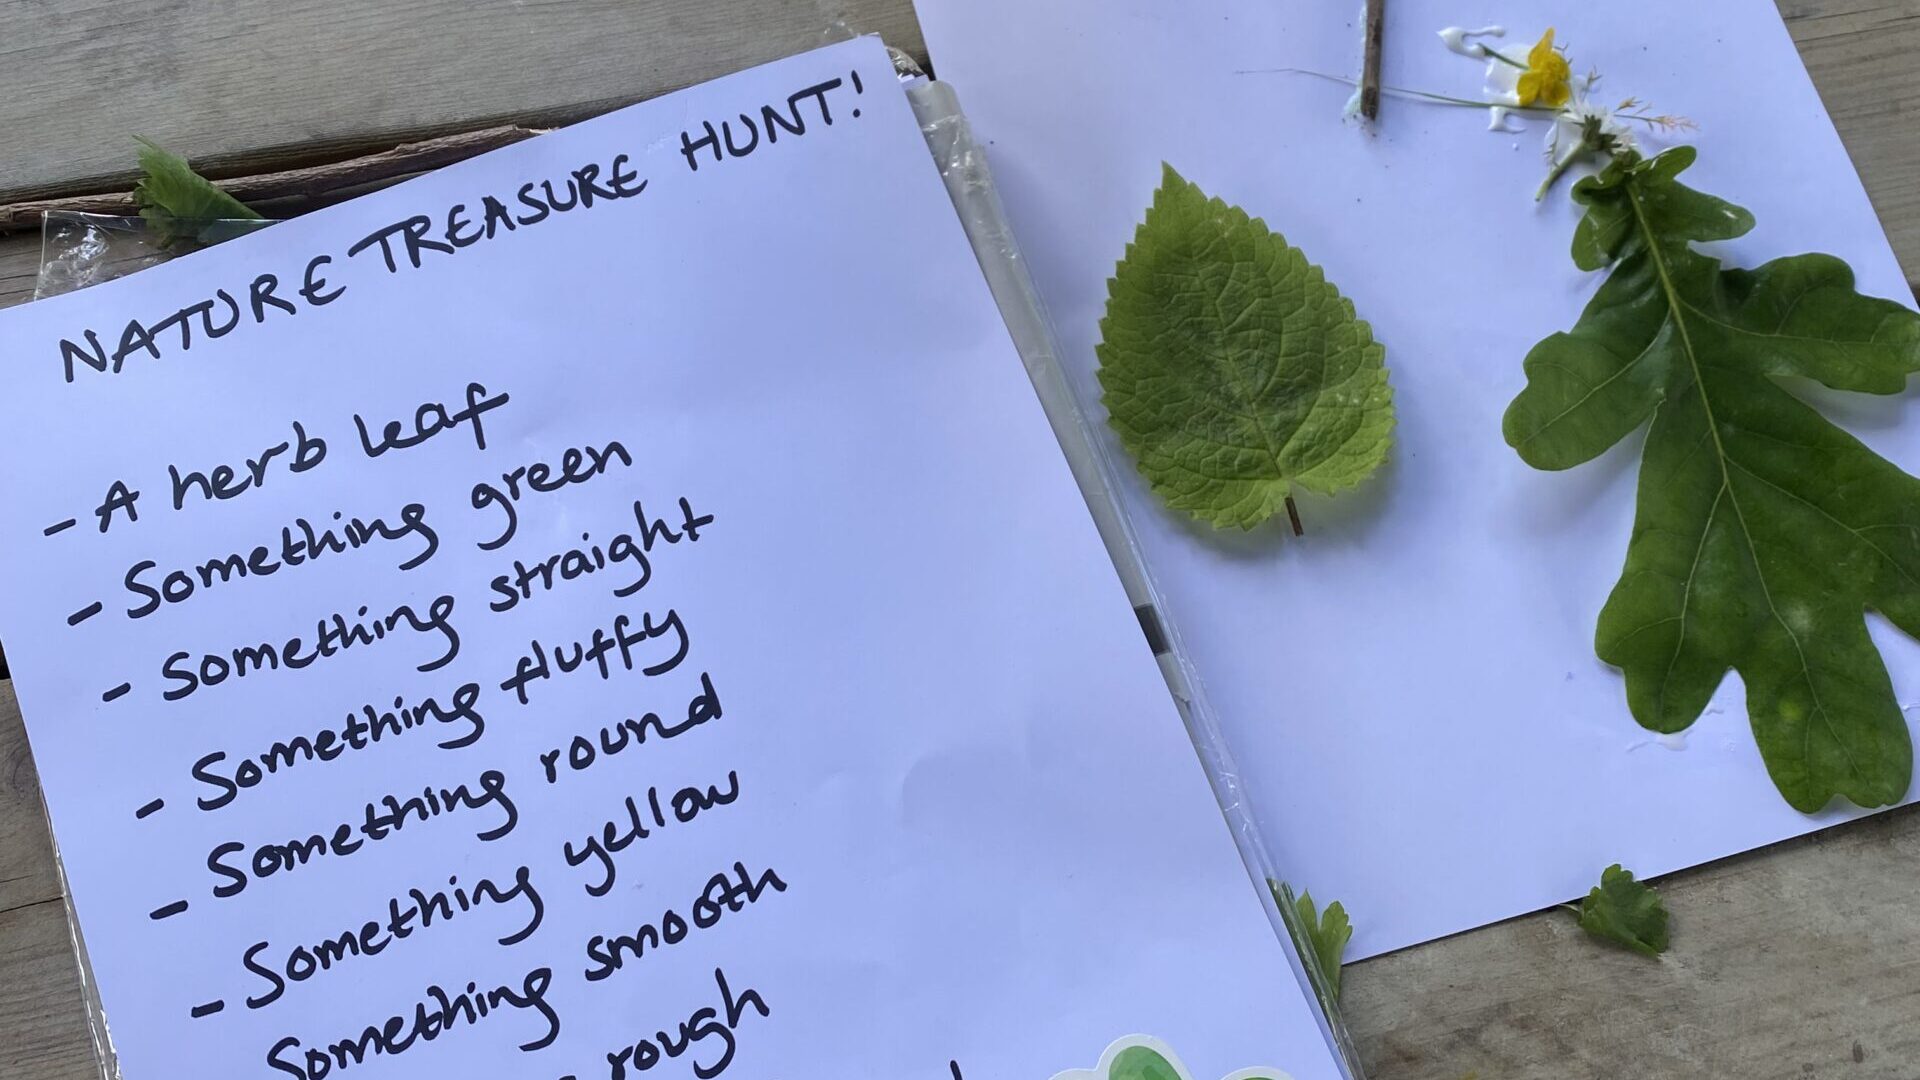 NATURE TREASURE HUNT!
- A herb leaf
- Something green
- Something straight
- Something fluffy
- Something round
- Something yellow
Something smooth
rough